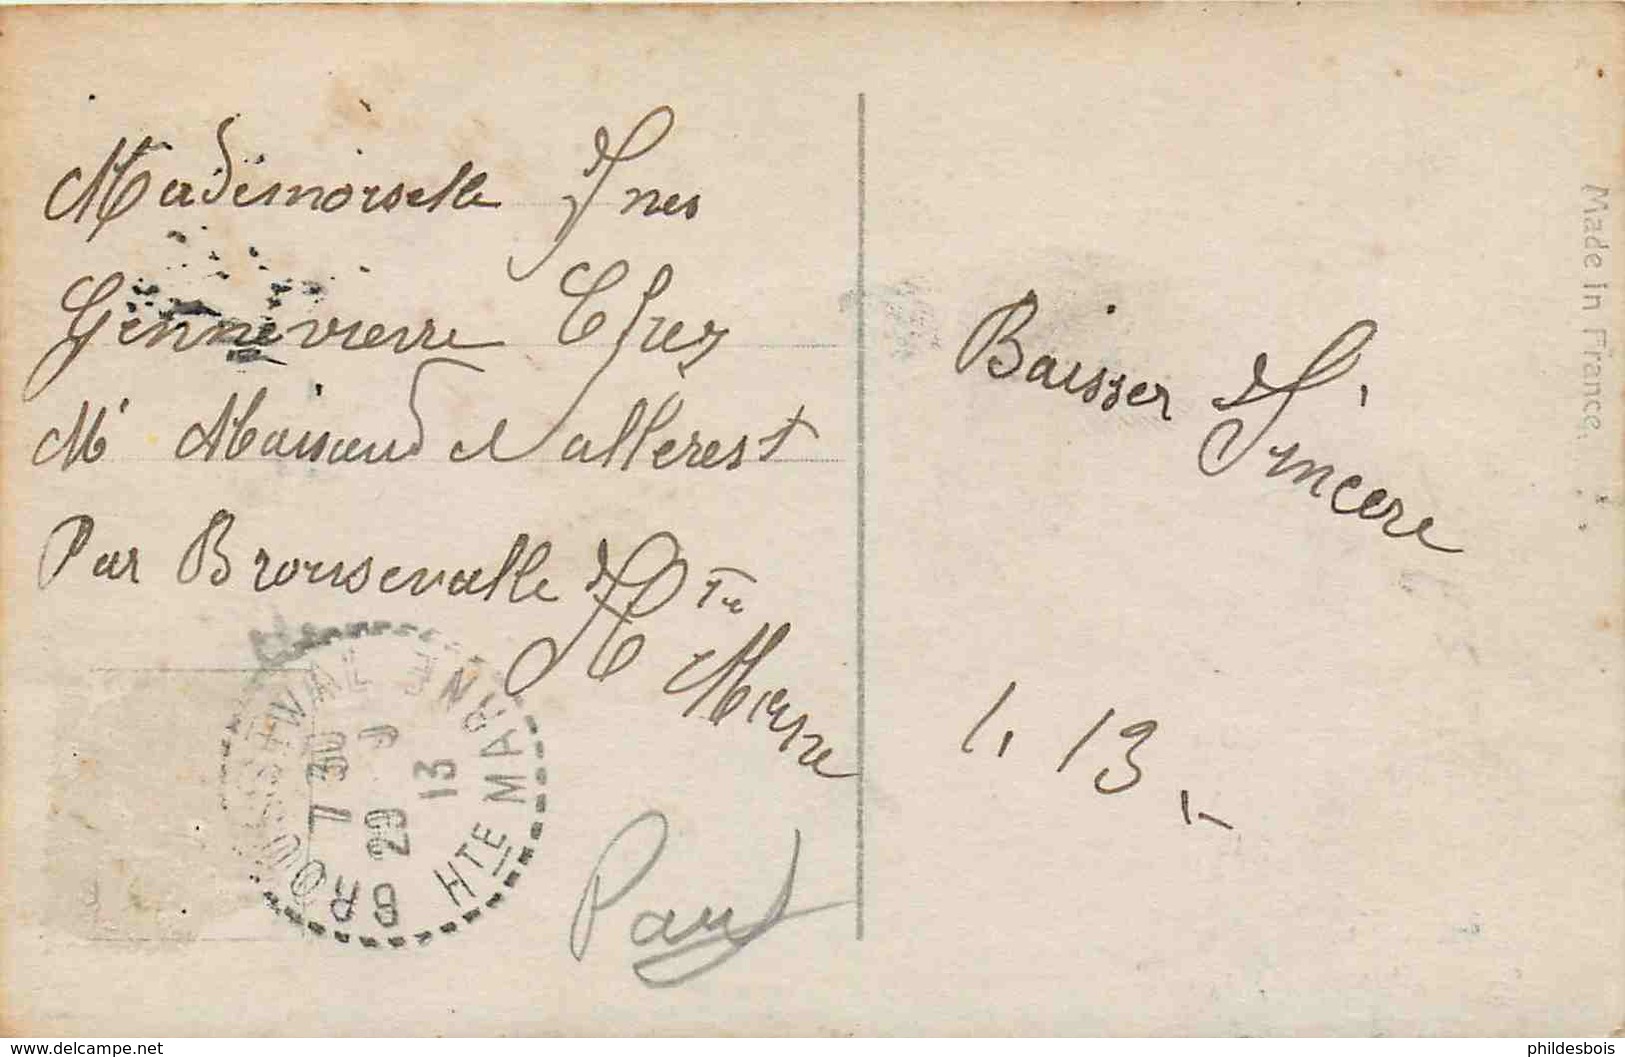 Mademoiselle Ines
Gennevierre Chez
Mr Maisand
Par Brousevalle Hte
Marne
Baisser Sincere
1. 13
BROUSSEVAL
HTE MARNE
7 30
29 9
13
Made in France.
www.delcampe.net
phildesbois